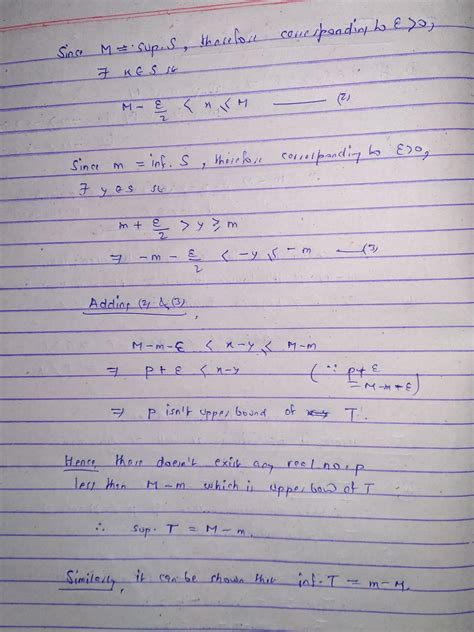 Since M = sup. S, therefore corresponding to ε>0,
∃ x∈S st
M - ε/2 < x ≤ M ——— (2)
Since m = inf. S, therefore corresponding to ε>0,
∃ y∈S st
m + ε/2 > y ≥ m
⇒ -m - ε/2 < -y ≤ -m —(3)
Adding (2) & (3),
M-m-ε < x-y ≤ M-m
⇒ p+ε < x-y (∵ p+ε = M-m+ε)
⇒ p isn't upper bound of T.
Hence there doesn't exist any real no. p
less then M-m which is upper bow of T
∴ sup. T = M-m.
Similarly, it can be shown that inf. T = m-M.